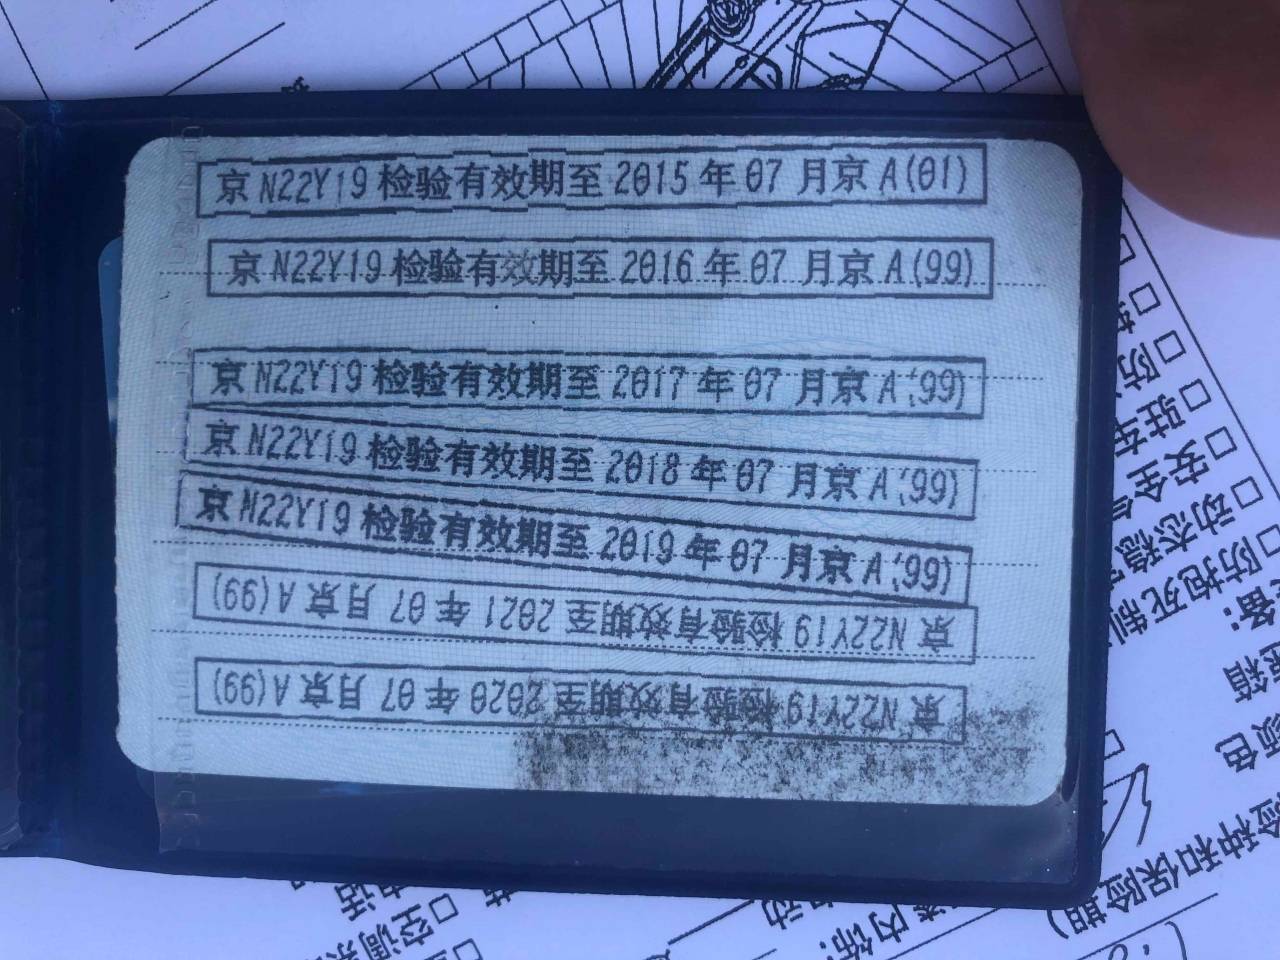 京N22Y19检验有效期至2015年07月京A(01)
京N22Y19检验有效期至2016年07月京A(99)
京N22Y19检验有效期至2017年07月京A(99)
京N22Y19检验有效期至2018年07月京A(99)
京N22Y19检验有效期至2019年07月京A(99)
京N22Y19检验有效期至2021年07月京A(99)
京N22Y19检验有效期至2020年07月京A(99)
防抱死制
动态稳
安全气
驻车
防
颜色
险种和保险期)
内饰:
空调系
电话